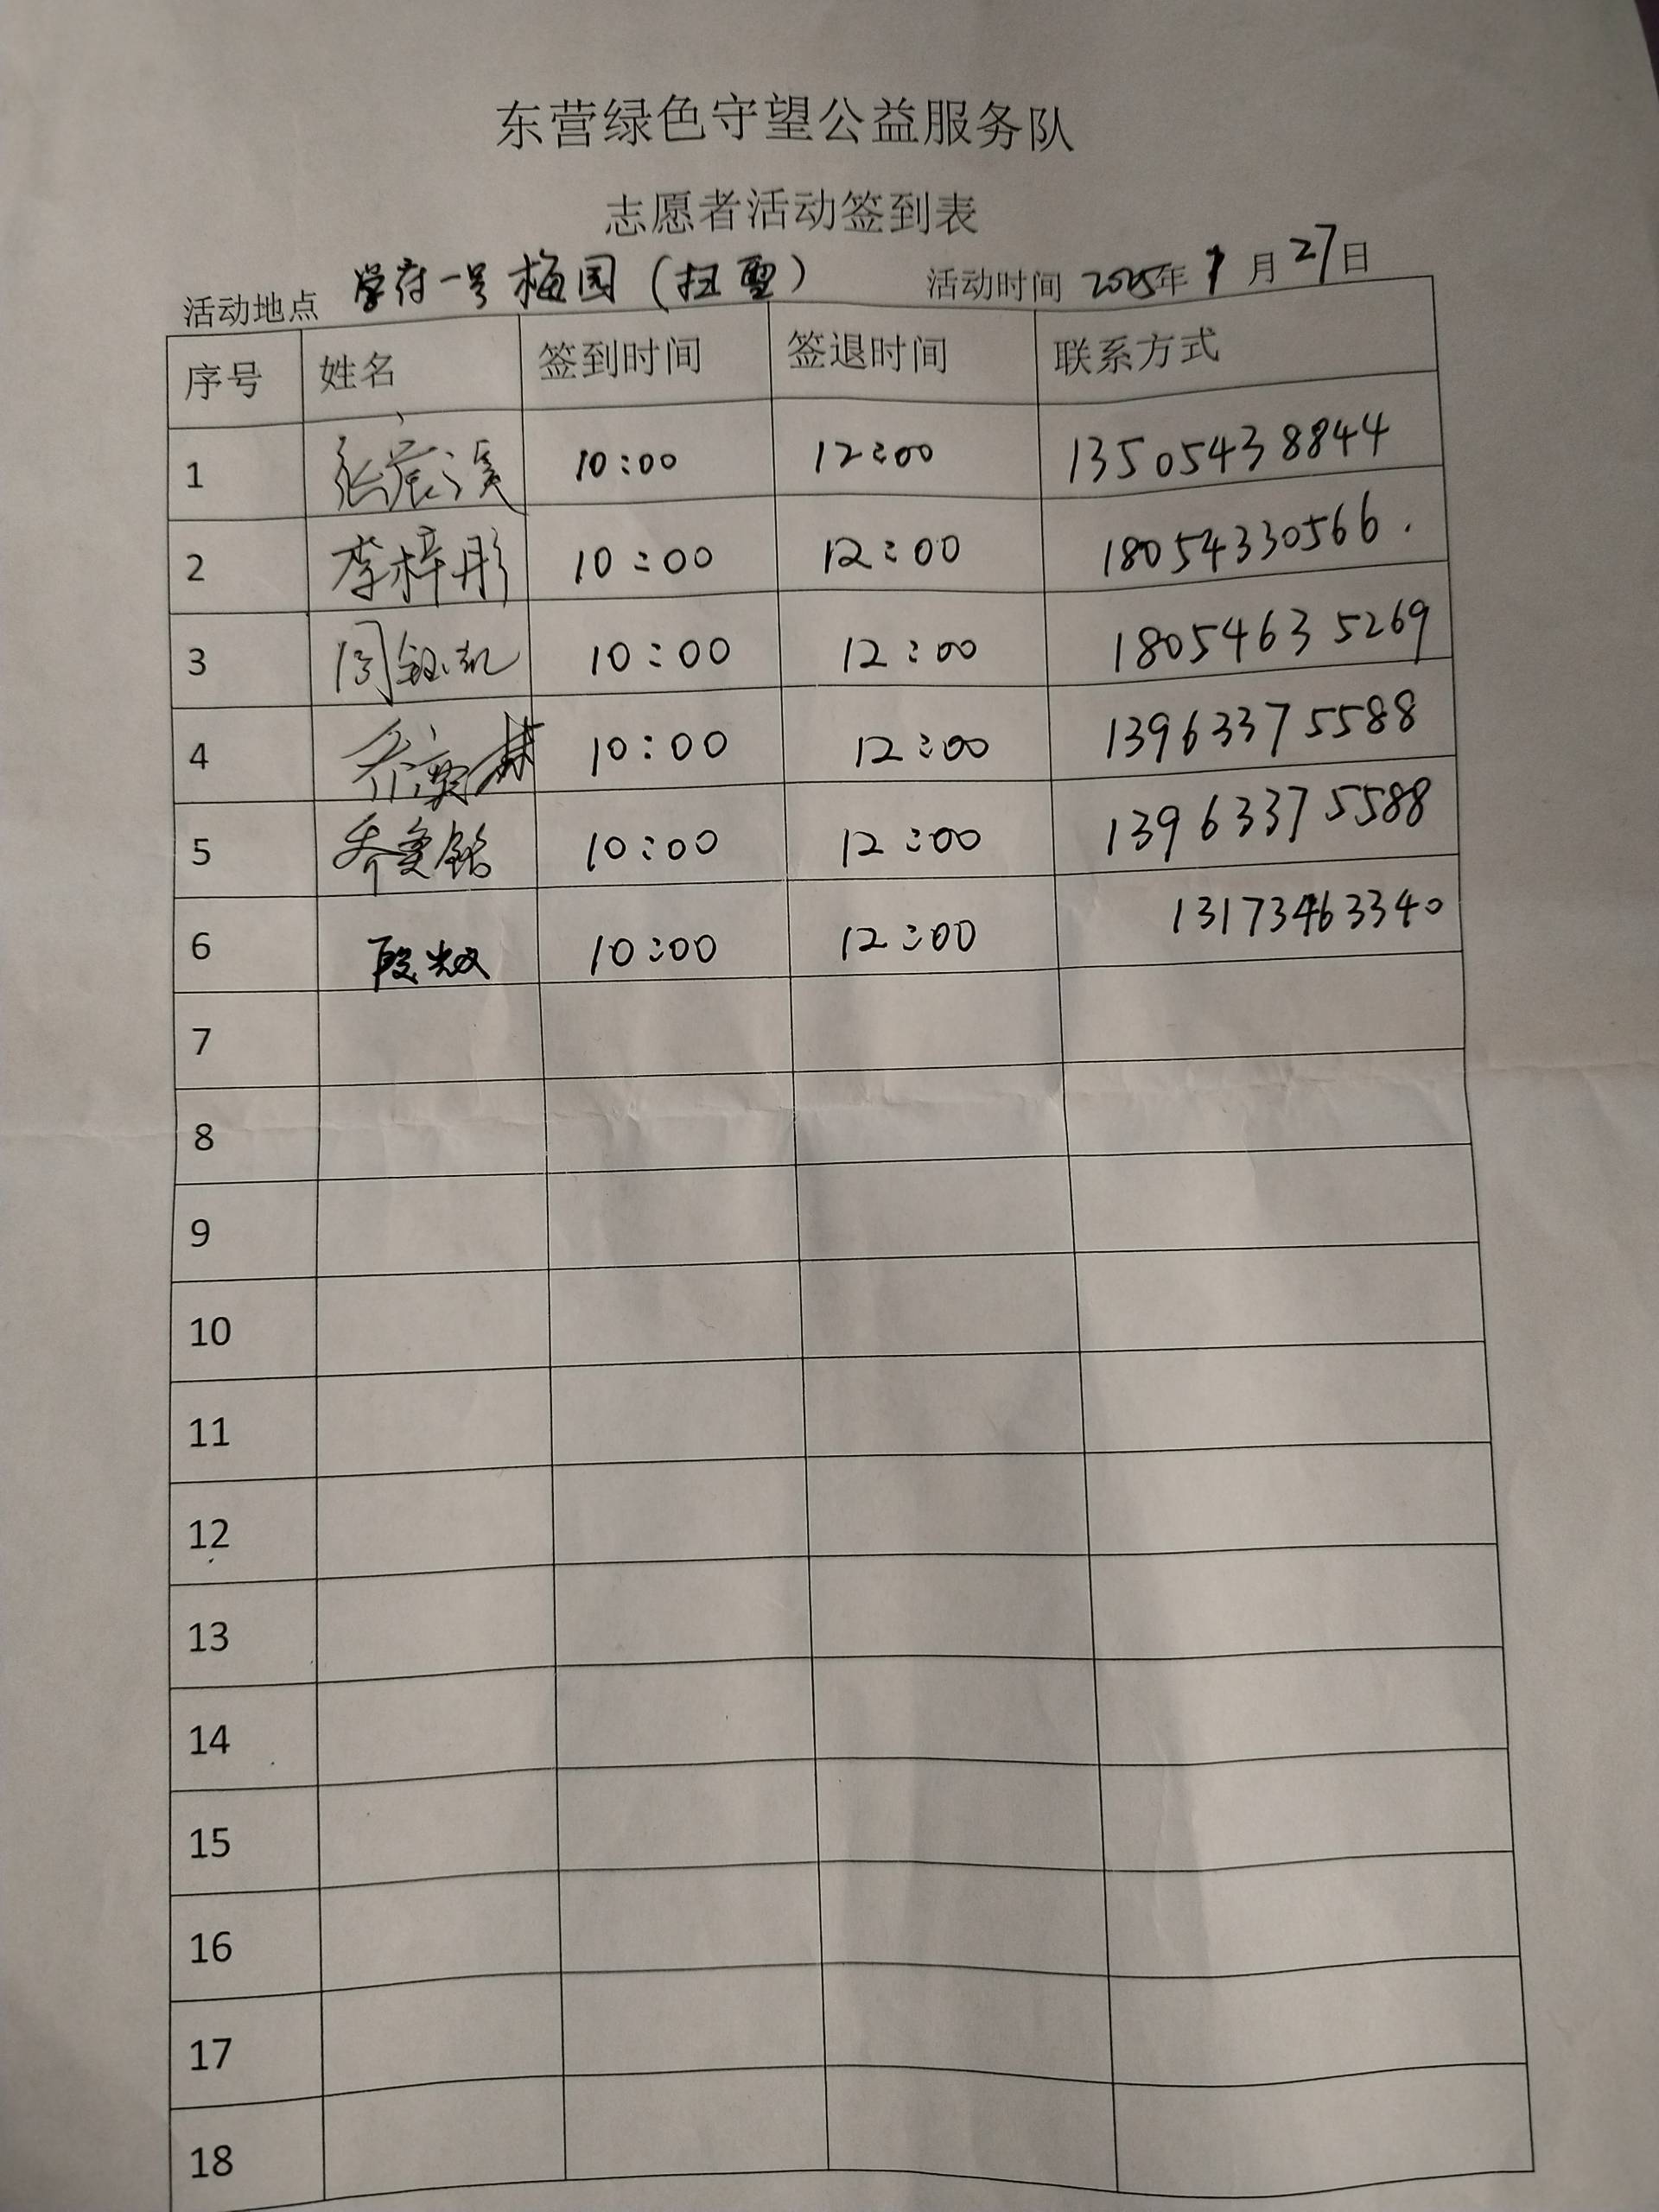 东营绿色守望公益服务队
志愿者活动签到表
活动地点 学府一号梅园（扫雪） 活动时间 2025年1月27日
序号 姓名 签到时间 签退时间 联系方式
1 张宸溪 10:00 12:00 13505438844
2 李梓彤 10:00 12:00 18054330566.
3 周钰凯 10:00 12:00 18054635269
4 乔 10:00 12:00 13963375588
5 乔奕铭 10:00 12:00 13963375588
6 10:00 12:00 13173463340
7
8
9
10
11
12
13
14
15
16
17
18